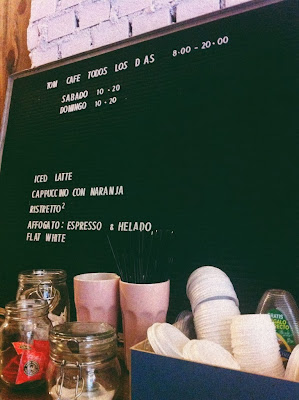 TOM CAFE TODOS LOS D AS 8:00-20:00
SABADO 10-20
DOMINGO 10-20
ICED LATTE
CAPPUCCINO CON NARANJA
RISTRETTO²
AFFOGATO: ESPRESSO & HELADO
FLAT WHITE
GRATIS